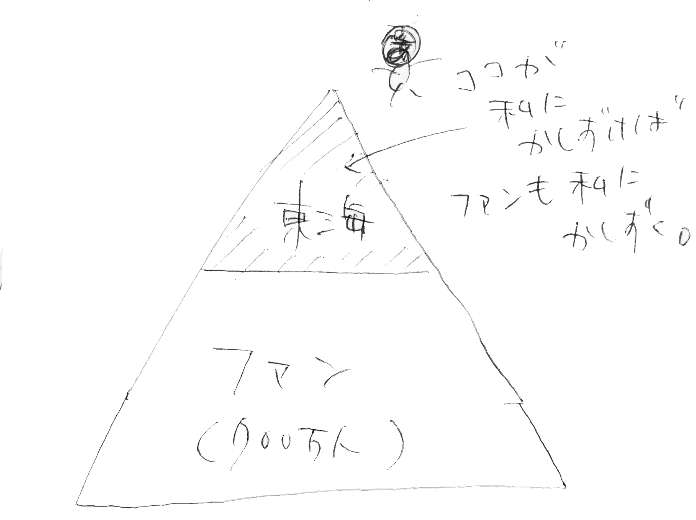 あ
ココが
私に
かしずけば
ファンも私に
かしずく。
東海
ファン
(700万人)